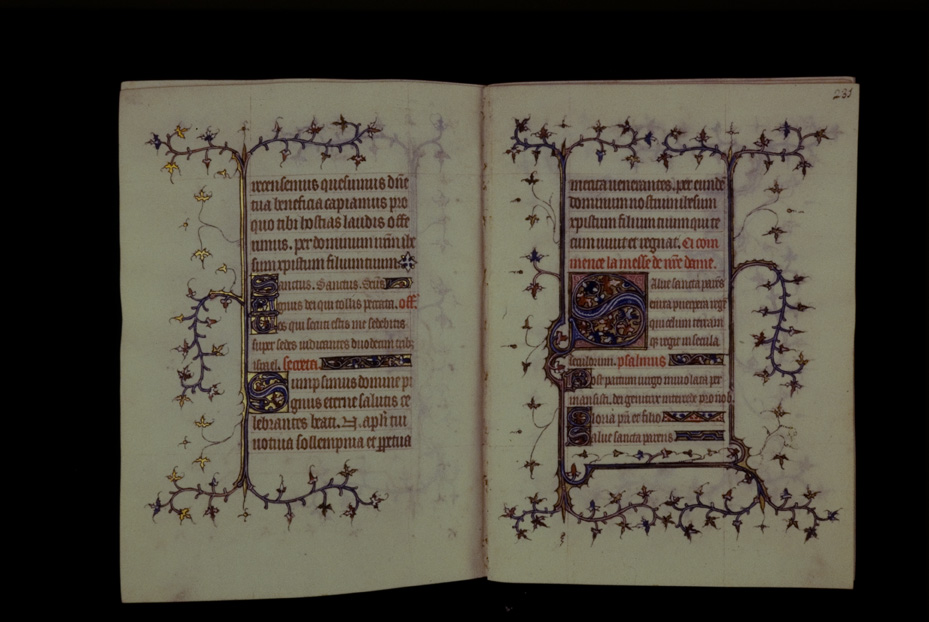 recensemus quesumus dñe
tua beneficia capiamus pro
quo tibi hostias laudis offe
rimus. per dominum nrm ihe
sum xpistum filium tuum
Sanctus. Sanctus. Scũs
Agnus dei qui tollis peccata. off
Vos qui secuti estis me sedebitis
super sedes iudicantes duodecim trib;
israel. secreta.
Sumpsimus domine pi
gnus eterne salutis ce
lebrantes beati. N. apli tui
notiua sollempnia et ꝑpetua
281
merita uenerantes. per eunde
dominum nostrum ihesum
xpistum filium tuum qui te
cum uiuit et regnat. Ci com
mence la messe de nr̃e dame.
Salue sancta parẽs
enixa puerpera regẽ
qui celum terram
qꝫ regit in secula
seculorum. psalmus
Post partum uirgo inuiolata per
mansisti. dei genitrix intercede pro nob.
Gloria pr̃i et filio
Salue sancta parens